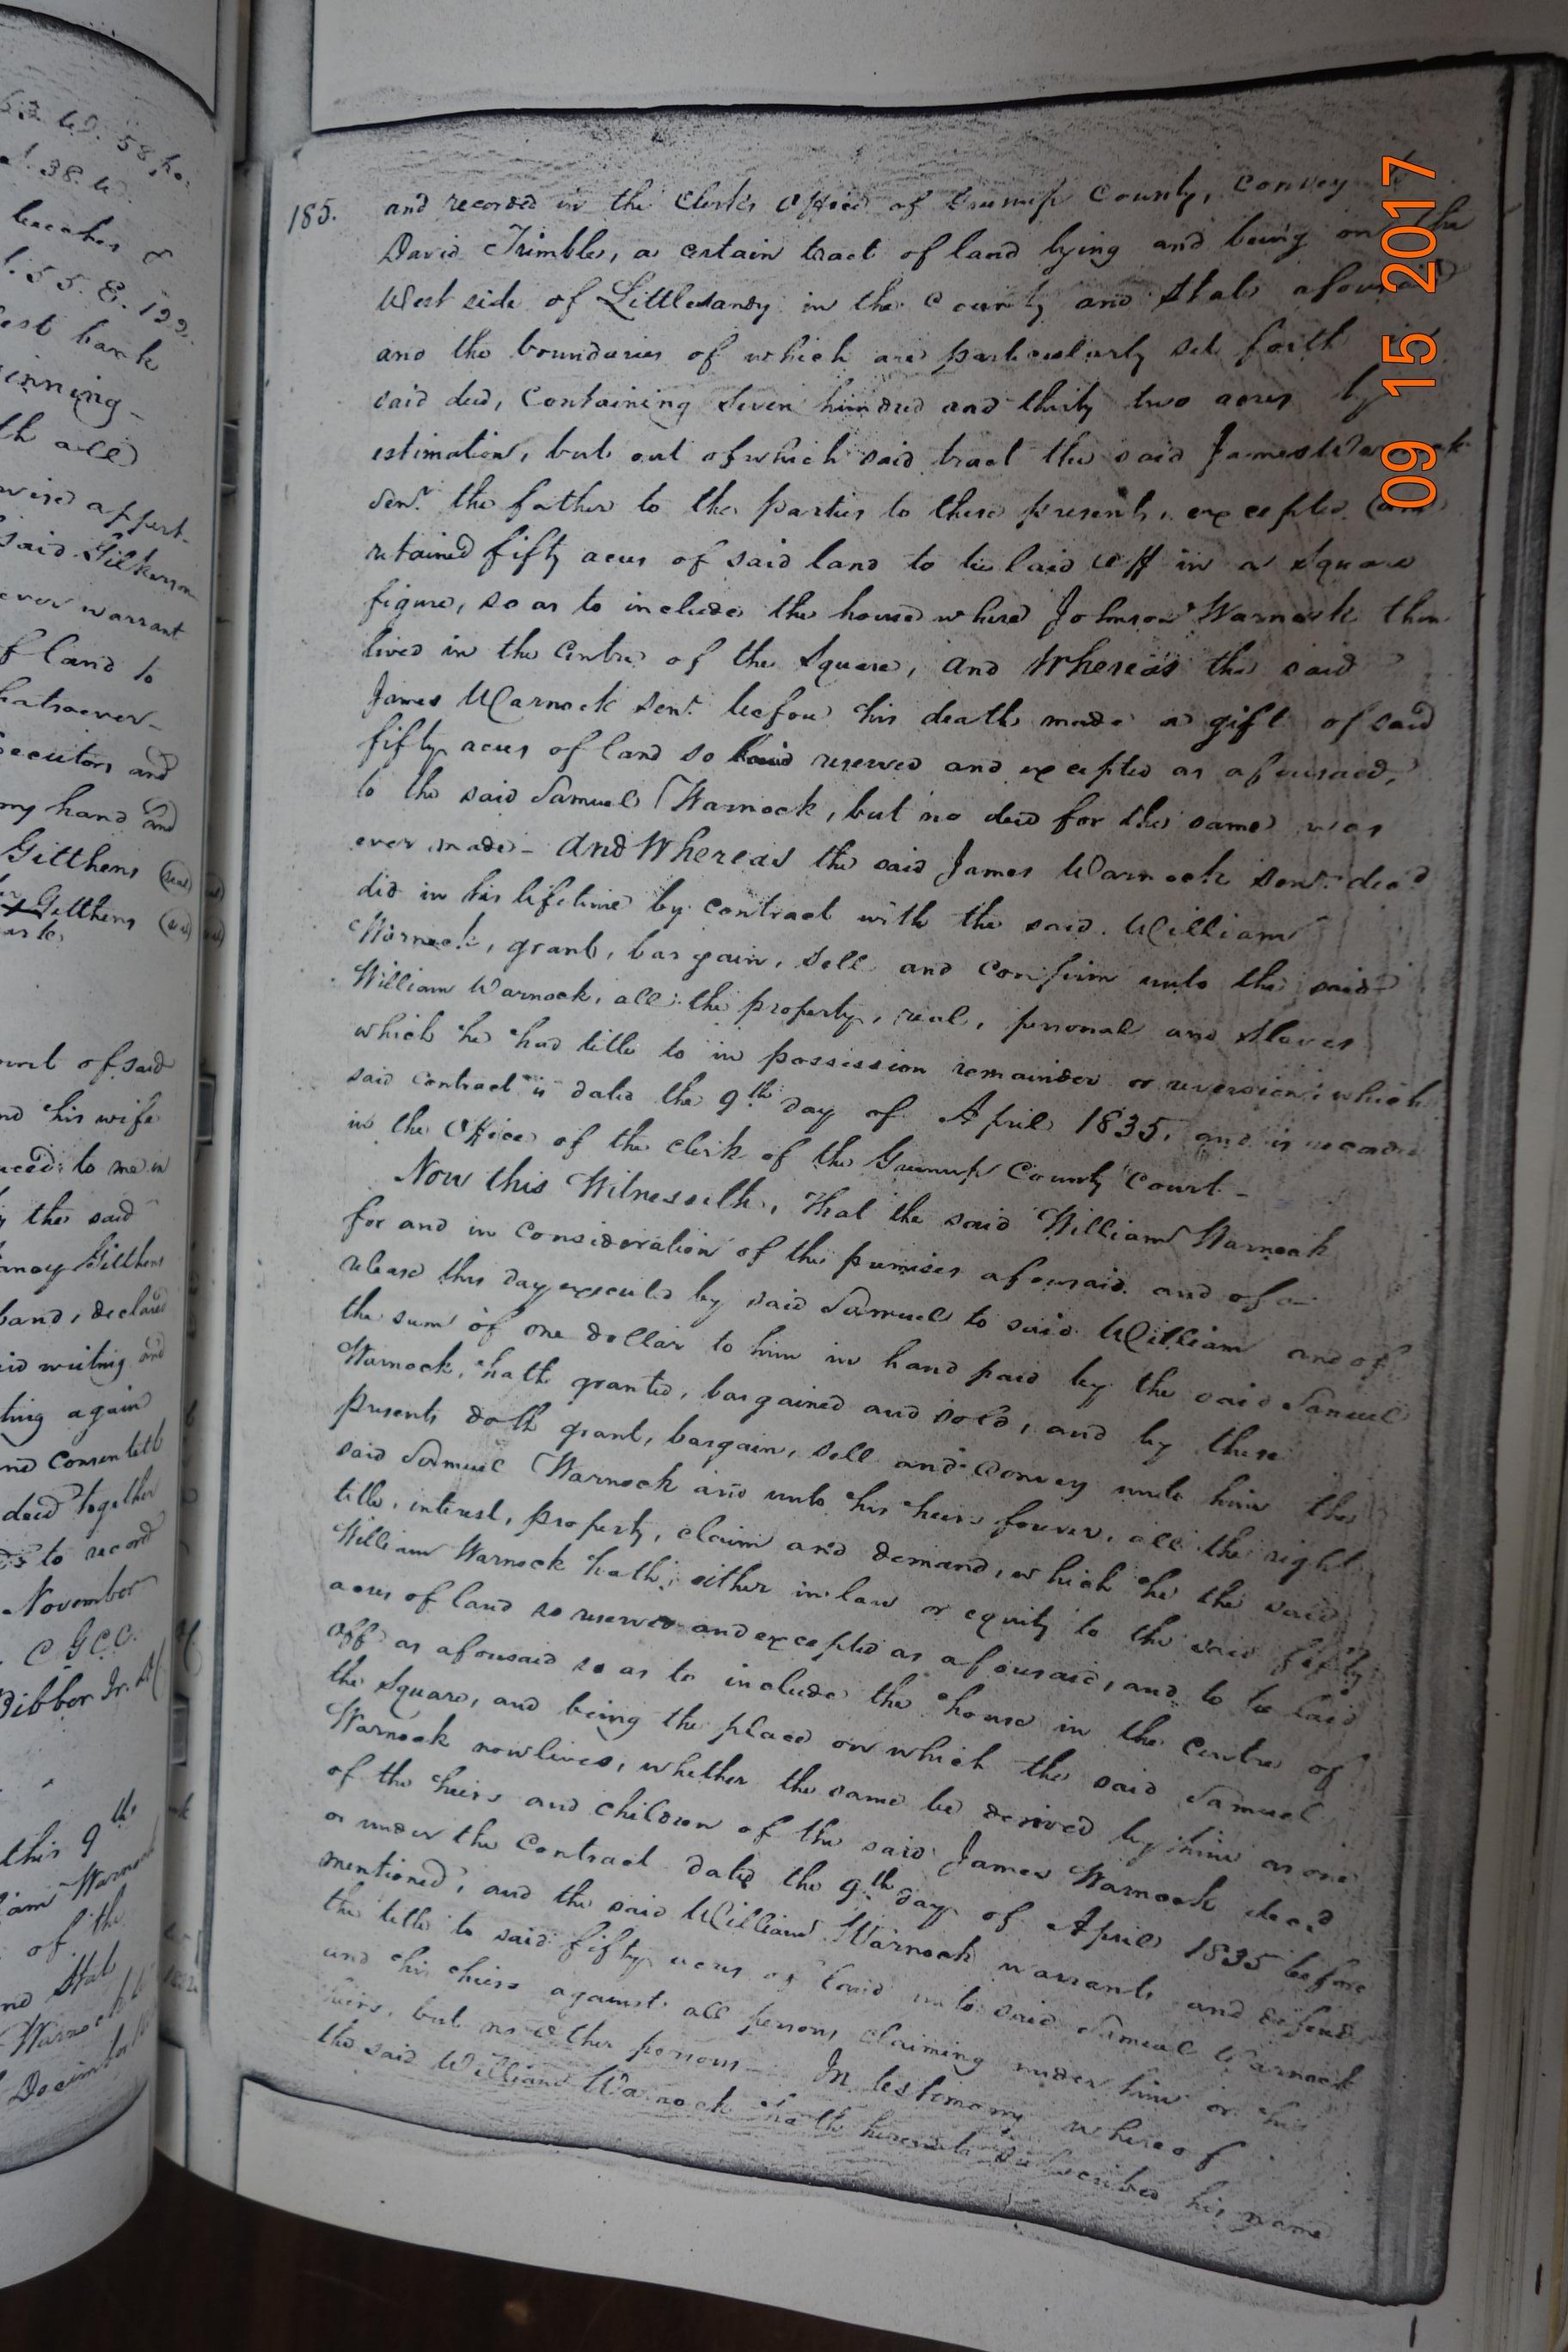 185.
and recorded in the Clerks Office of Greenup County, Convey
David Trimble, a certain tract of land lying and being on the
West side of Little Sandy in the County and State aforesaid
and the boundaries of which are particularly set forth
said deed, Containing Seven hundred and thirty two acres by
estimation, but out of which said tract the said James Warnock
Senr. the father to the parties to these presents, excepted (and
retained fifty acres of said land to be laid off in a Square
figure, so as to include the house where Johnson Warnock then
lived in the Centre of the Square, and Whereas the said
James Warnock Senr. before his death made a gift of said
fifty acres of land so reserved and excepted as aforesaid,
to the said Samuel Warnock, but no deed for the same was
ever made - And Whereas the said James Warnock Senr. decd
did in his lifetime by contract with the said William
Warnock, grant, bargain, sell and confirm unto the said
William Warnock, all the property, real, personal and Slaves
which he had title to in possession remainder or reversion which
said contract is dated the 9th day of April 1835, and is recorded
in the Office of the clerk of the Greenup County Court -
Now this Witnesseth, That the said William Warnock
for and in Consideration of the premises aforesaid and of a
release this day executed by said Samuel to said William and of
the sum of one dollar to him in hand paid by the said Samuel
Warnock, hath granted, bargained and sold, and by these
presents doth grant, bargain, sell and Convey unto him the
said Samuel Warnock and unto his heirs forever, all the right
title, interest, property, claim and demand, which he the said
William Warnock hath, either in law or equity to the said fifty
acres of land so reserved and excepted as aforesaid, and to be laid
off as aforesaid so as to include the house in the Centre of
the Square, and being the place on which the said Samuel
Warnock now lives, whether the same be derived by him as one
of the heirs and children of the said James Warnock decd
or under the Contract dated the 9th day of April 1835 before
mentioned, and the said William Warnock warrants and defends
the title to said fifty acres of land unto said Samuel Warnock
and his heirs against all persons claiming under him or his
heirs, but no other persons - In testimony whereof
the said William Warnock hath hereunto subscribed his name
09 15 2017